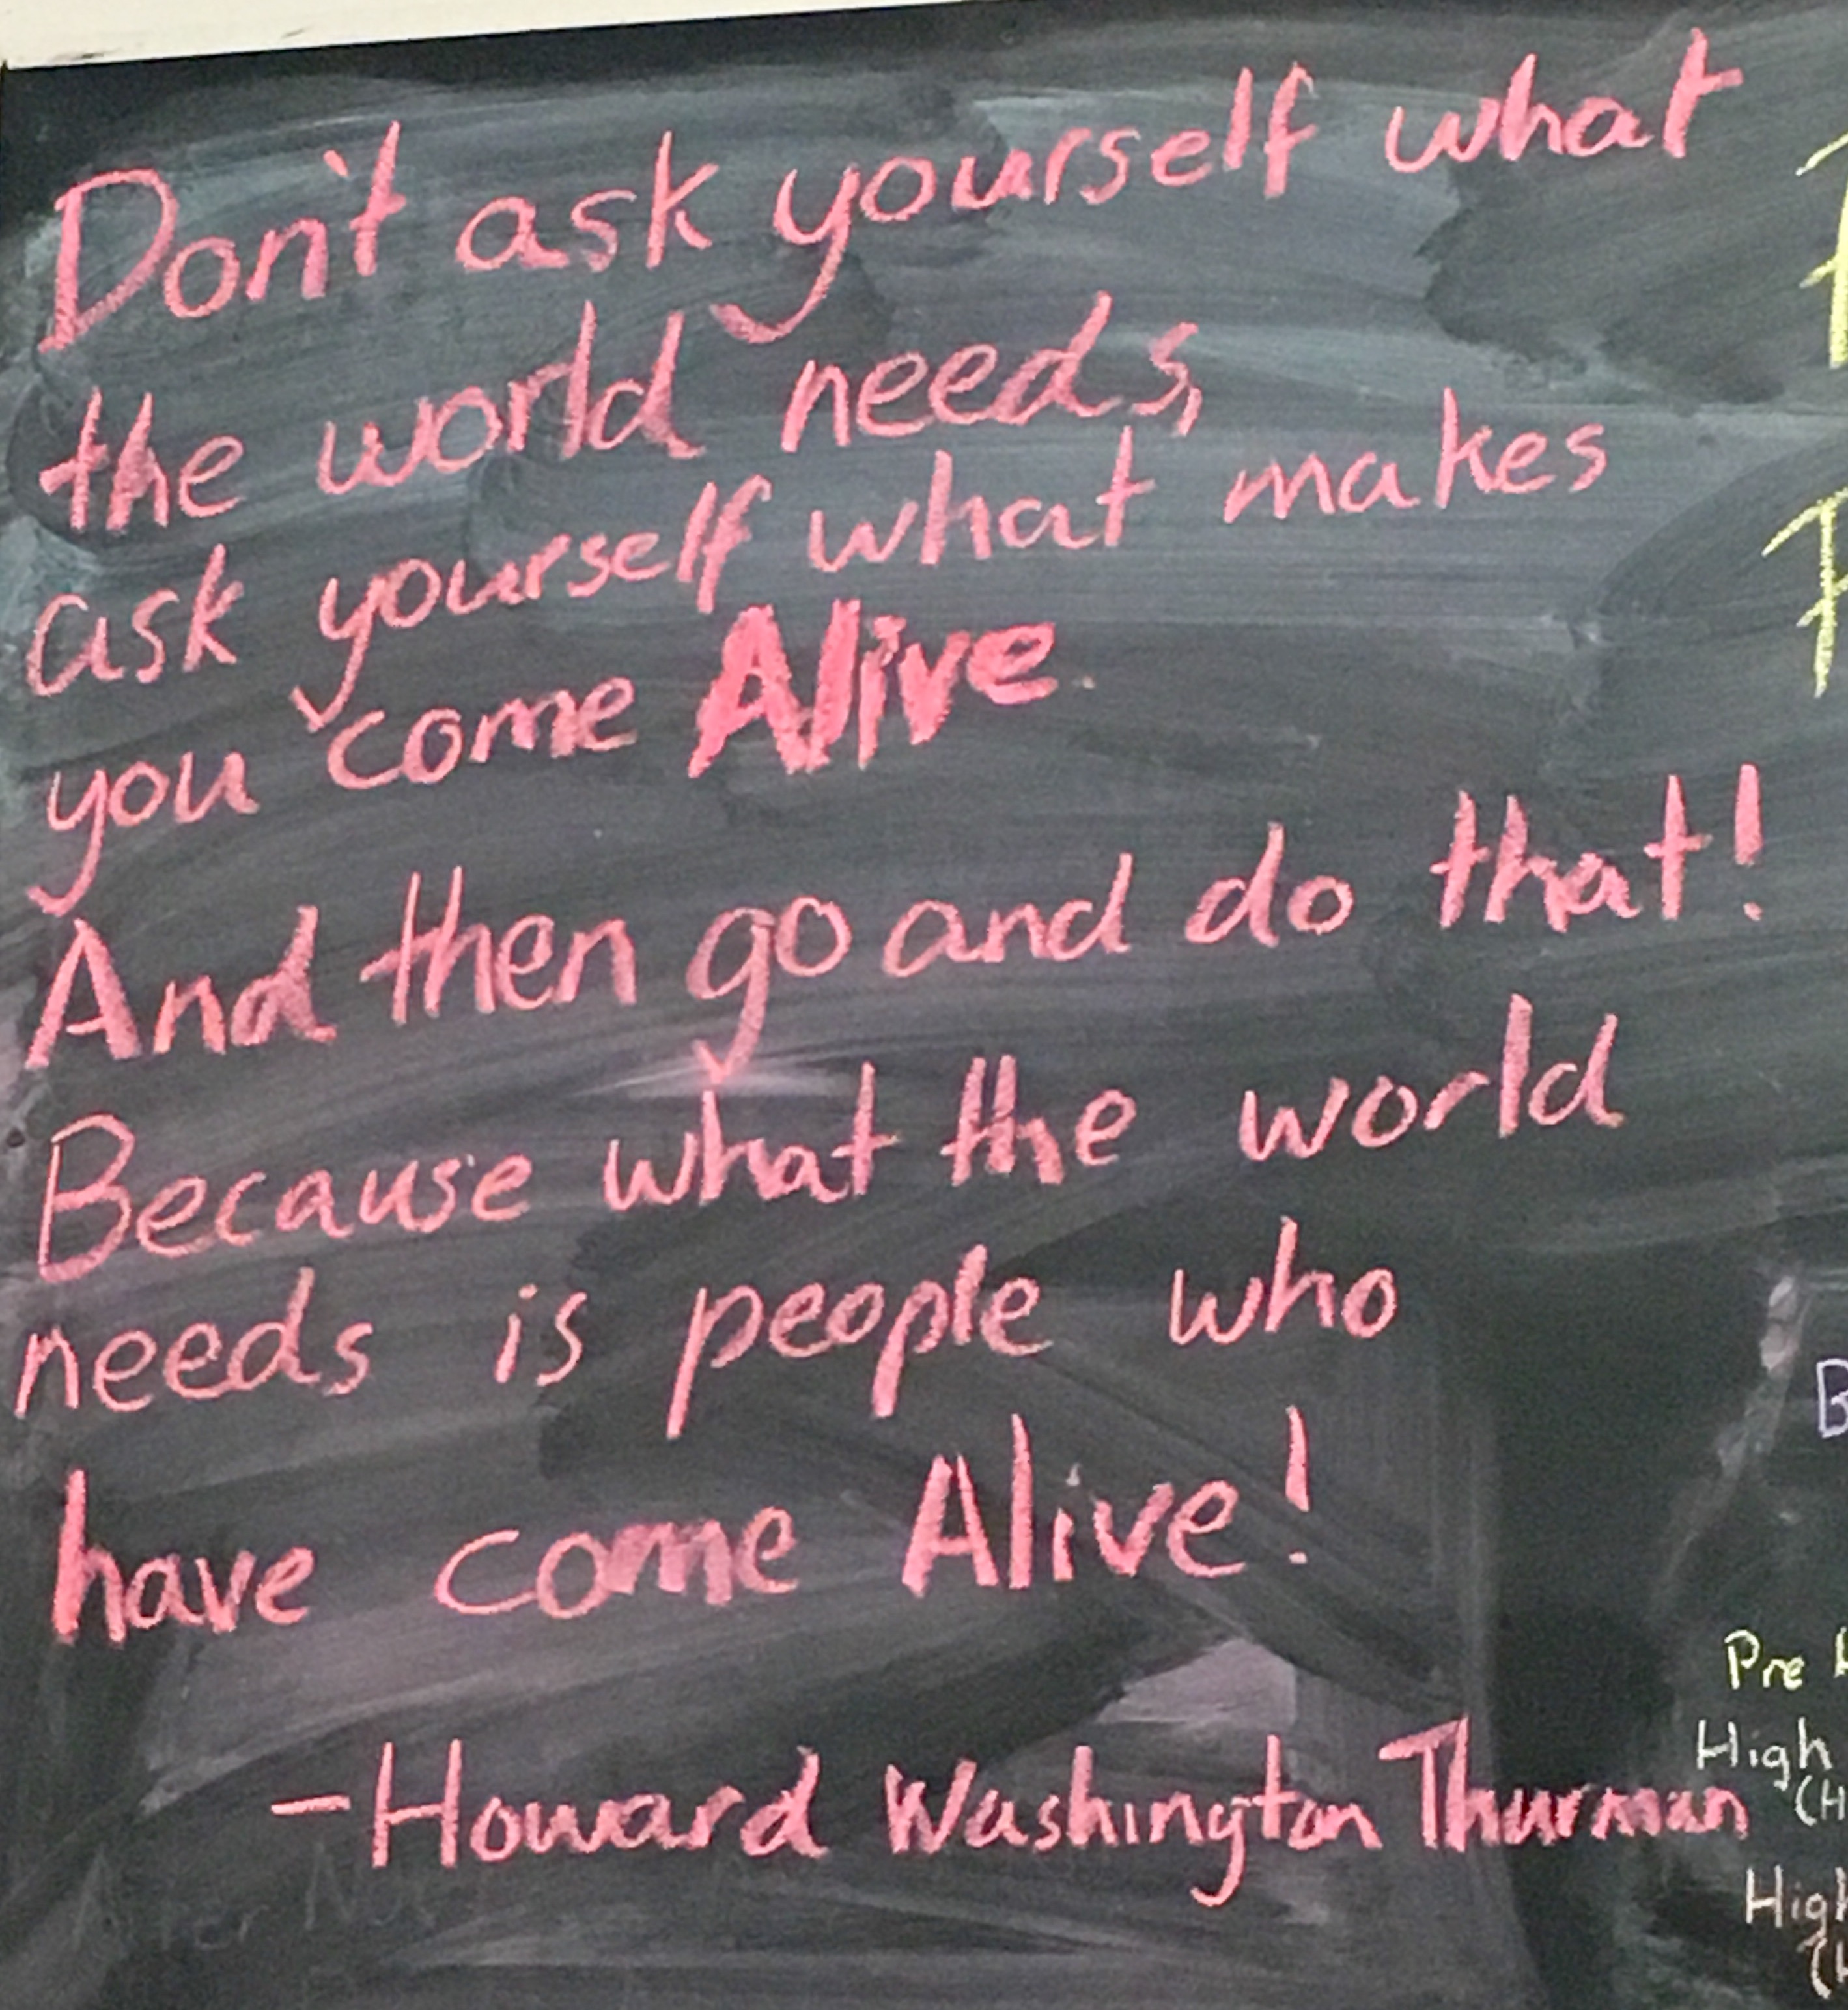 Don't ask yourself what
the world needs,
ask yourself what makes
you come Alive.
And then go and do that!
Because what the world
needs is people who
have come Alive!
-Howard Washington Thurman
Pre
High
(H
High